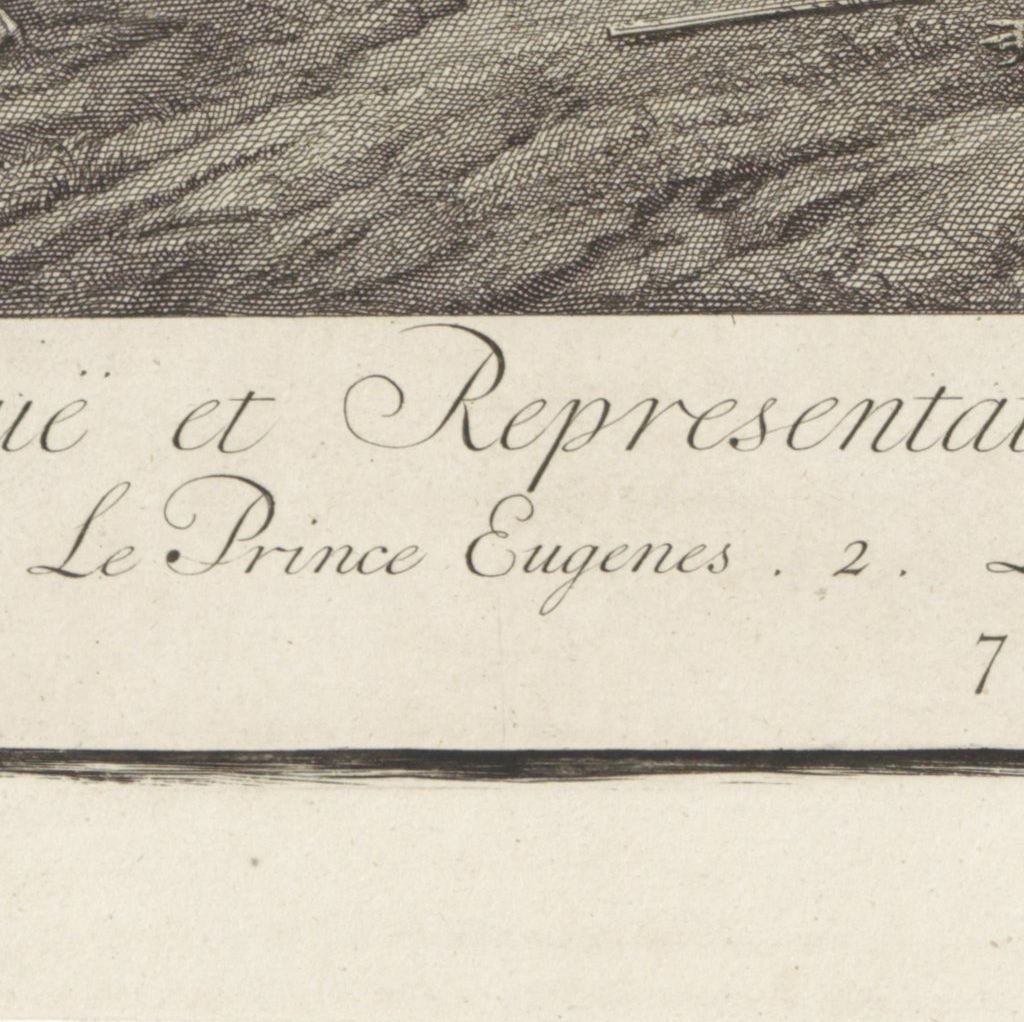 uë et Representat
Le Prince Eugenes . 2 .
7